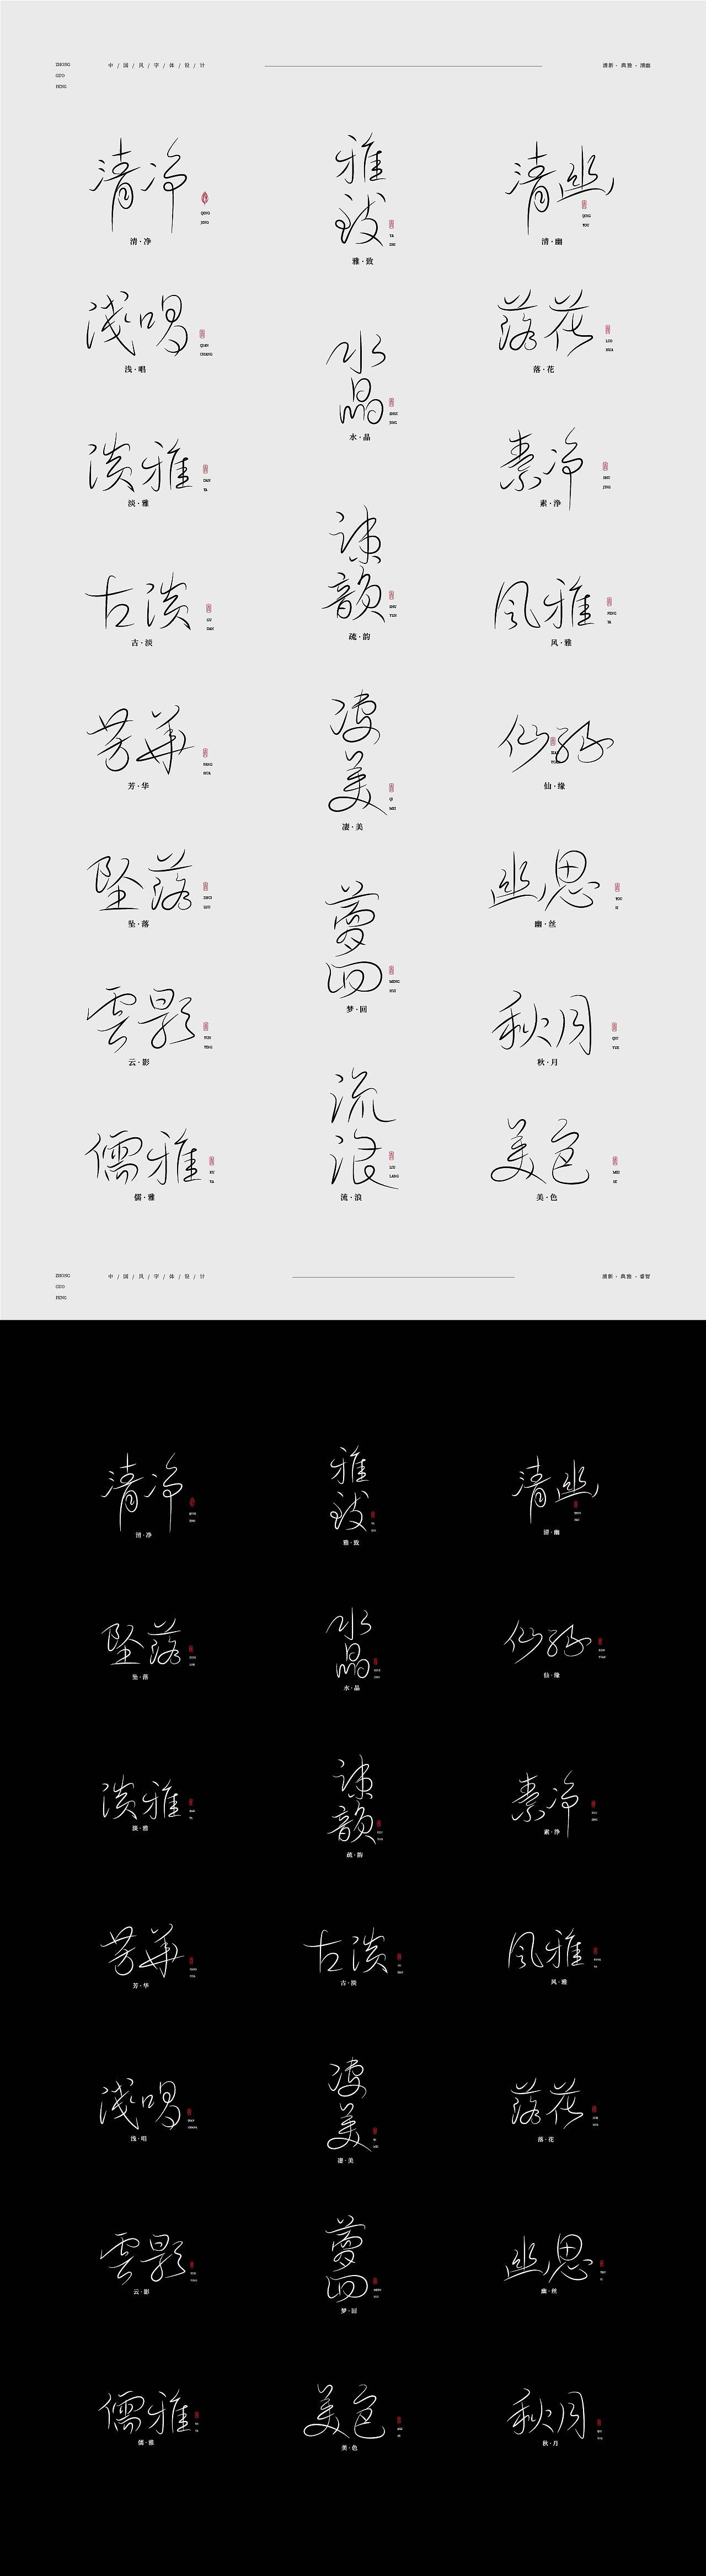 ZHONG
GUO
FENG
中 / 国 / 风 / 字 / 体 / 设 / 计
清新 · 典雅 · 清幽
清净
QING
JING
清·净
雅
致
YA
ZHI
雅·致
清幽
QING
YOU
清·幽
浅唱
QIAN
CHANG
浅·唱
水
晶
SHUI
JING
水·晶
落花
LUO
HUA
落·花
淡雅
DAN
YA
淡·雅
疏
韵
SHU
YUN
疏·韵
素净
SHU
JING
素·净
古淡
GU
DAN
古·淡
风雅
FENG
YA
风·雅
芳華
FANG
HUA
芳·华
凄
美
QI
MEI
凄·美
仙缘
仙·缘
坠落
ZHUI
LUO
坠·落
夢
回
MENG
HUI
梦·回
幽思
YOU
SI
幽·丝
雲影
YUN
YING
云·影
秋月
QIU
YUE
秋·月
儒雅
RU
YA
儒·雅
流
浪
LIU
LANG
流·浪
美色
MEI
SE
美·色
ZHONG
GUO
FENG
中 / 国 / 风 / 字 / 体 / 设 / 计
清新 · 典雅 · 睿智
清净
清·净
雅
致
雅·致
清幽
清·幽
坠落
坠·落
水
晶
水·晶
仙缘
仙·缘
淡雅
淡·雅
疏
韵
疏·韵
素净
素·净
芳華
芳·华
古淡
古·淡
风雅
风·雅
浅唱
浅·唱
凄
美
凄·美
落花
落·花
雲影
云·影
夢
回
梦·回
幽思
幽·丝
儒雅
儒·雅
美色
美·色
秋月
秋·月